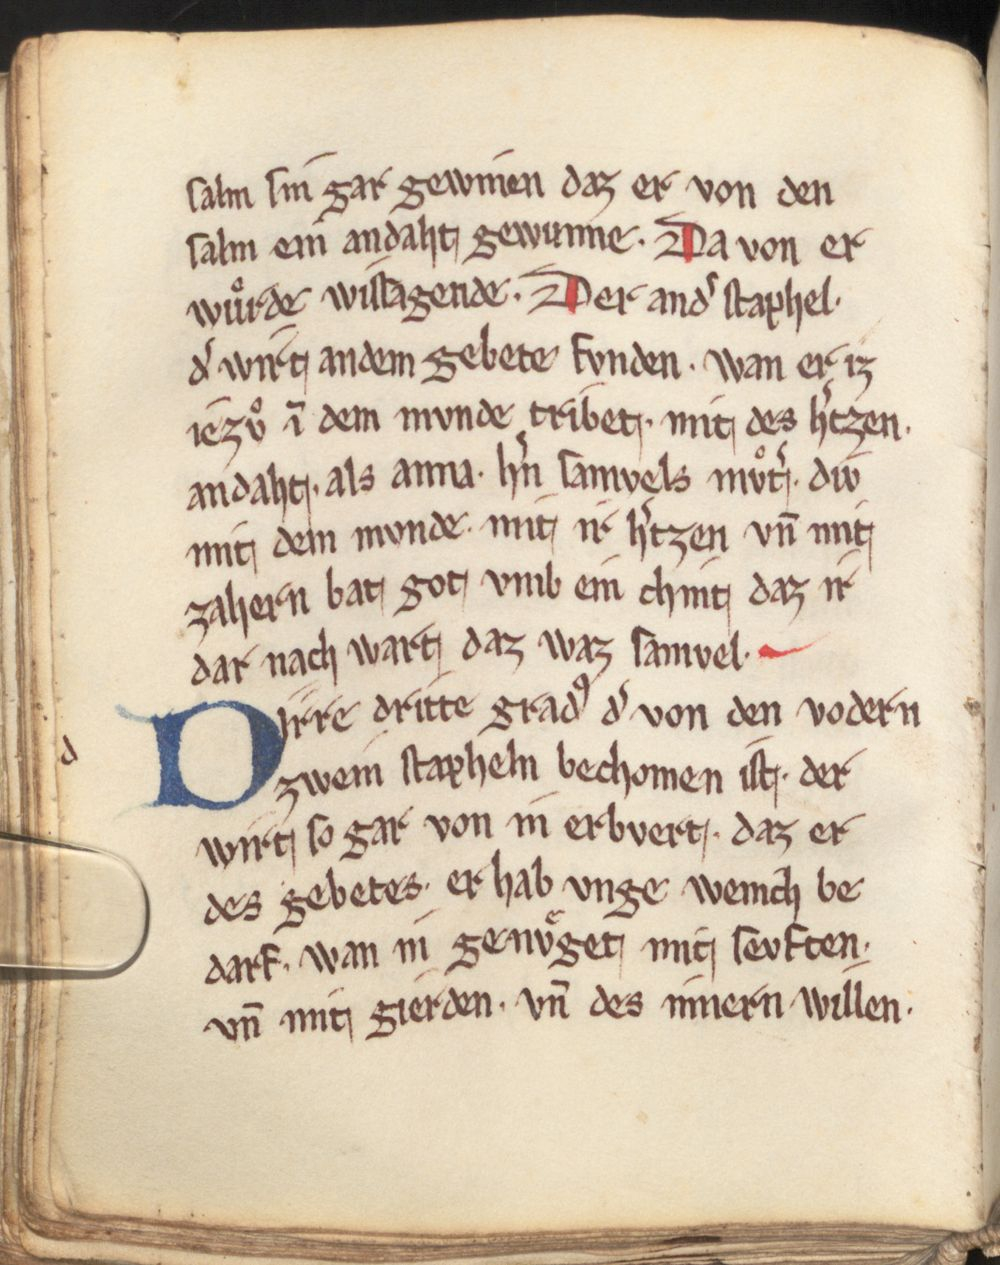 salm sin gar gewinnen daz er von den
salm ein andaht gewunne. Da von er
wuͦrde wissagende. Der and͛ staphel.
d͛ wirt andem gebete fvnden. wan er iz
iezvͦ ī dem mvnde tribet. mit des h͛tzen.
andaht. als anna. h͛n samvels mvͦt͛. div
mit dem mvnde. mit ir h͛tzen vn̄ mit
zahern bat got vmb ein chint daz ir
dar nach wart daz waz samvel.
Dirre dritte gradꝰ d͛ von den vodern
d
zwein stapheln bechomen ist. der
wirt so gar von in erbvert. daz er
des gebetes. er hab vnge wenich be
darf. wan in genvͤget mit sevften.
vn̄ mit gierden. vn̄ des innern willen.